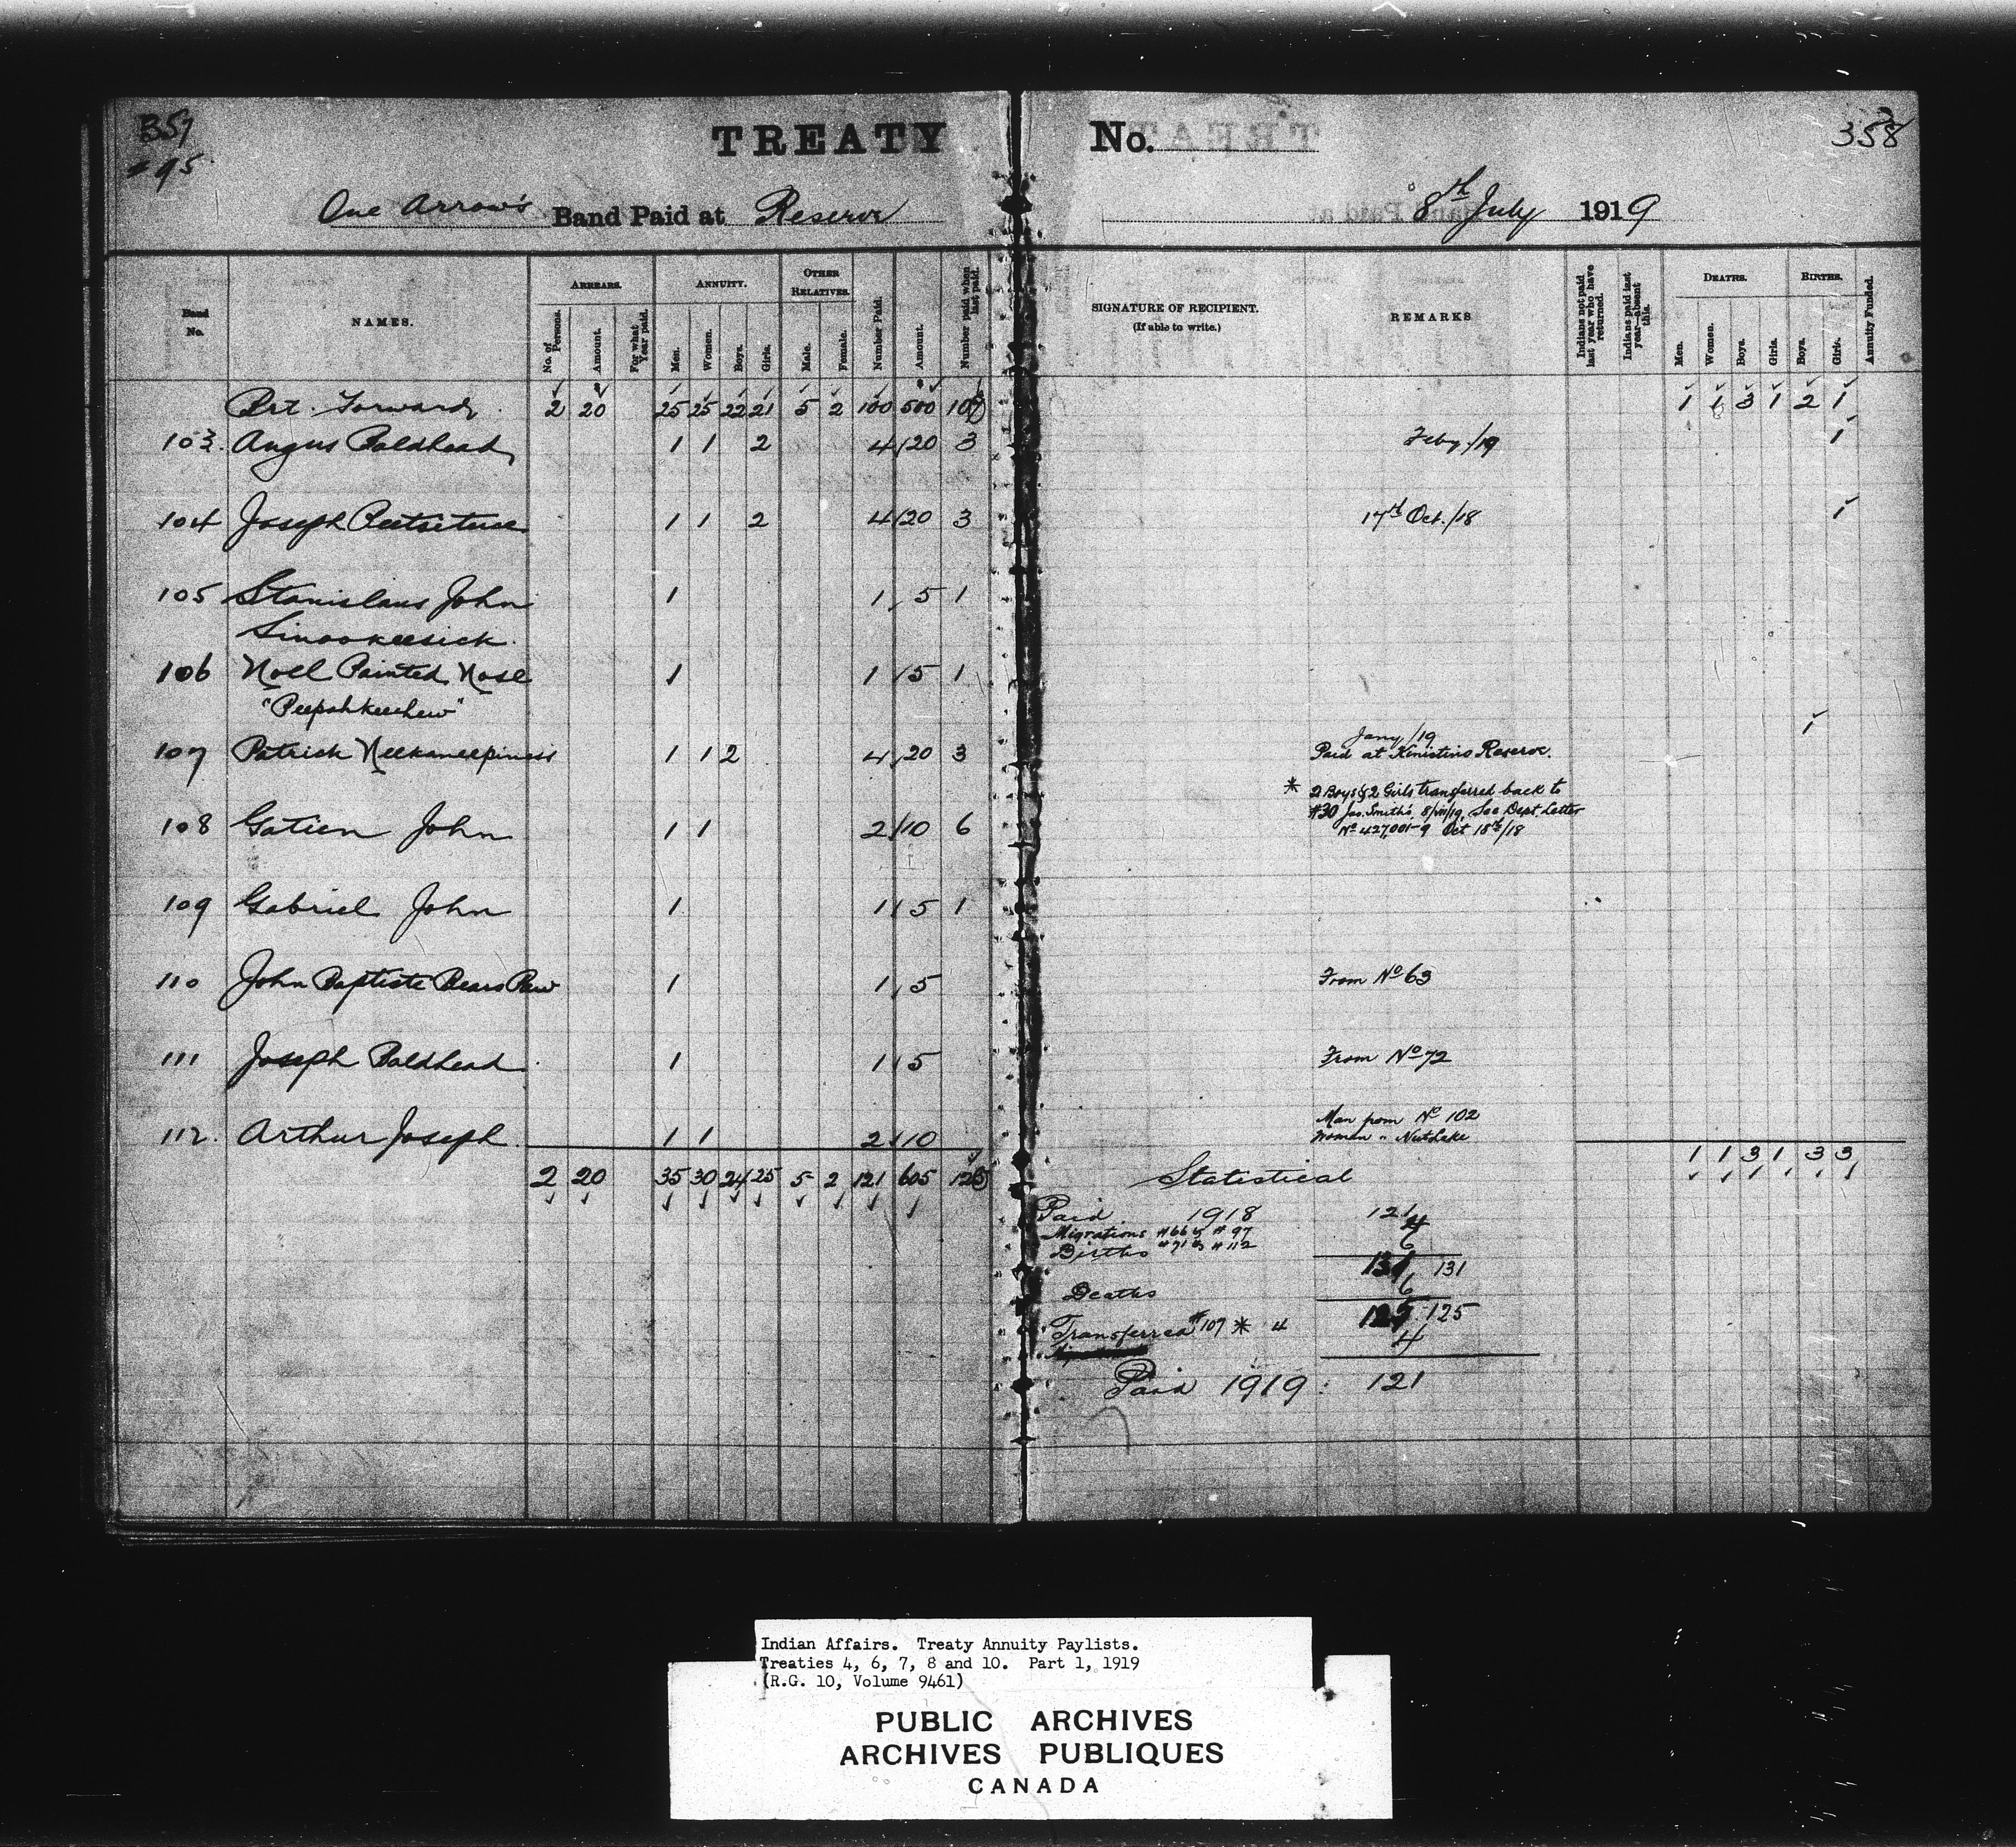 357
TREATY No. 358
One Arrow's Band Paid at Reserve 8th July 1919
Band No.
NAMES.
ARREARS.
No. of Persons.
Amount.
For what Year paid.
ANNUITY.
Men.
Women.
Boys.
Girls.
OTHER RELATIVES.
Male.
Female.
Number Paid.
Amount.
Number paid when last paid.
SIGNATURE OF RECIPIENT.
(If able to write.)
REMARKS
Indians not paid last year who have returned.
Indians paid last year—absent this.
DEATHS.
Men.
Women.
Boys.
Girls.
BIRTHS.
Boys.
Girls.
Annuity Funded.
Brt. Forward 2 20 25 25 22 21 5 2 100 500 107 1 1 3 1 2 1
103. Angus Baldhead 1 1 2 4 20 3 Feby/19 1
104 Joseph 1 1 2 4 20 3 17th Oct./18 1
105 Stanislaus John 1 1 5 1
Sinookeesick
106 Noel Painted Nose 1 1 5 1
"Peepahkeechew"
Jany/19 1
107 Patrick Neekaneepiness 1 1 2 4 20 3 Paid at Kinistino Reserve.
* 2 Boys & 2 Girls transferred back to
#30 Jas. Smith's, 8/VII/19, See Dept. Letter
108 Gatien John 1 1 2 10 6 No 427,001-9 Oct 18th/18
109 Gabriel John 1 1 5 1
110 John Baptiste Bears Paw 1 1 5 From No 63
111 Joseph Baldhead 1 1 5 From No 72
Man from No 102
112. Arthur Joseph 1 1 2 10 Woman " Nut Lake
2 20 35 30 24 25 5 2 121 605 125 1 1 3 1 3 3
Statistical
Paid 1918 121
Migrations #66 & #97 4
Births #71 & #112 6
131
Deaths 6
125
Transferred #107 * 4 4
Paid 1919 : 121
Indian Affairs. Treaty Annuity Paylists.
Treaties 4, 6, 7, 8 and 10. Part 1, 1919
(R.G. 10, Volume 9461)
PUBLIC ARCHIVES
ARCHIVES PUBLIQUES
CANADA